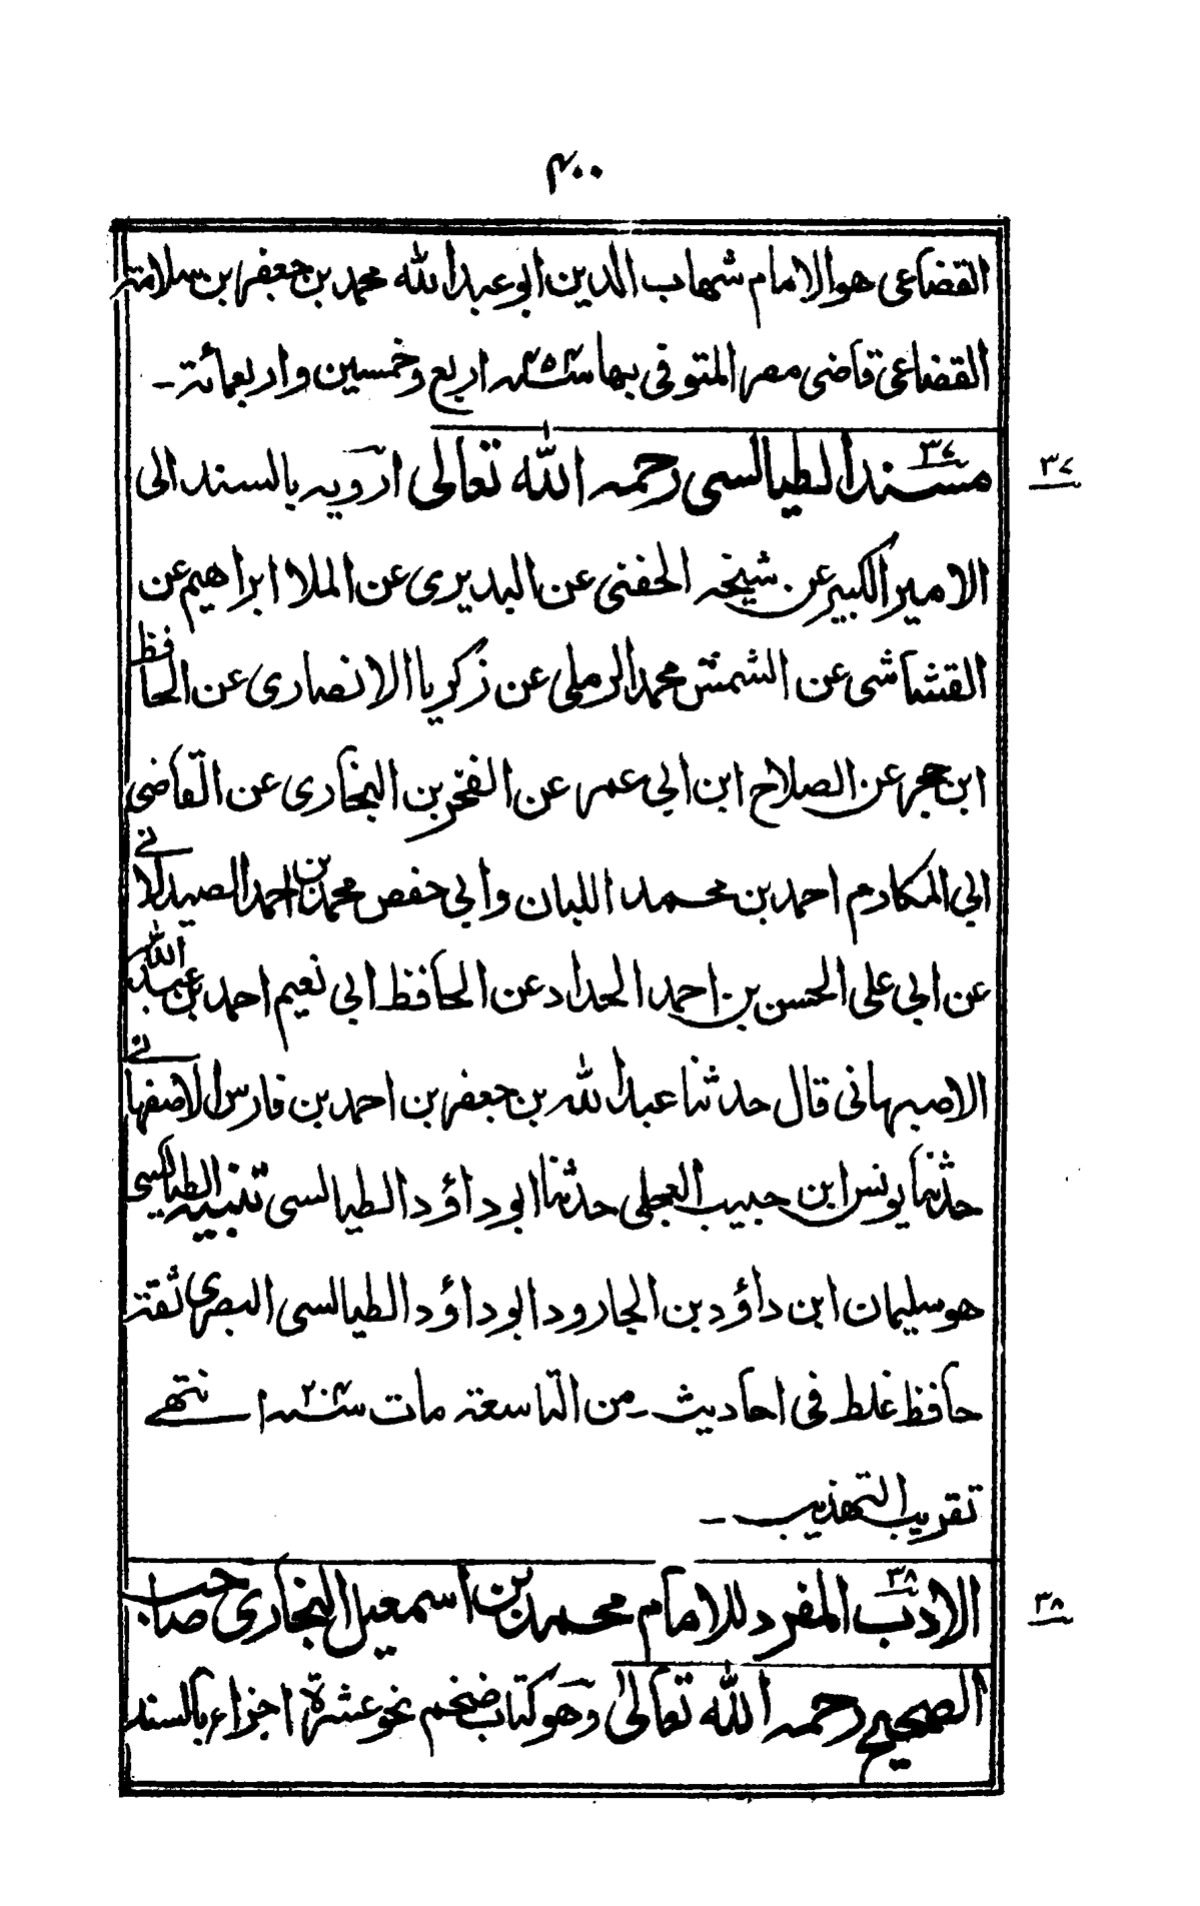 ۴۰۰
القضاعی هو الامام شهاب الدین ابو عبد الله محمد بن جعفر ابن سلامۃ
القضاعی قاضی مصر المتوفی بها سنہ ۴۵۴ اربع وخمسین واربعمائۃ ـ
۳۷ مسند الطیالسی رحمہ اللہ تعالی ارویہ بالسند الی ۳۷
الامیر الکبیر عن شیخہ الحفنی عن البدیری عن الملا ابراهیم عن
القشاشی عن الشمس محمد الرملی عن زکریا الانصاری عن الحافظ
ابن حجر عن الصلاح ابن ابی عمر عن الفخر بن البخاری عن القاضی
ابی المکارم احمد بن محمد اللبان وابی حفص محمد بن احمد الصیدلانے
عن ابی علی الحسن بن احمد الحداد عن الحافظ ابی نعیم احمد بن عبد اللہ
الاصبهانی قال حدثنا عبد اللہ بن جعفر بن احمد بن فارس الاصفهانے
حدثنا یونس ابن حبیب العجلی حدثنا ابو داؤد الطیالسی تنبیہ الطیالسی
هو سلیمان ابن داؤد بن الجارود ابو داؤد الطیالسی البصری ثقۃ
حافظ غلط فی احادیث ـ من التاسعۃ مات سنہ ۲۰۴ انتهے
تقریب التهذیب ـ
۳۸ الادب المفرد للامام محمد بن اسمعیل البخاری صاحب ۳۸
الصحیح رحمہ اللہ تعالیٰ وهو کتاب ضخم نحو عشرۃ اجزاء بالسند